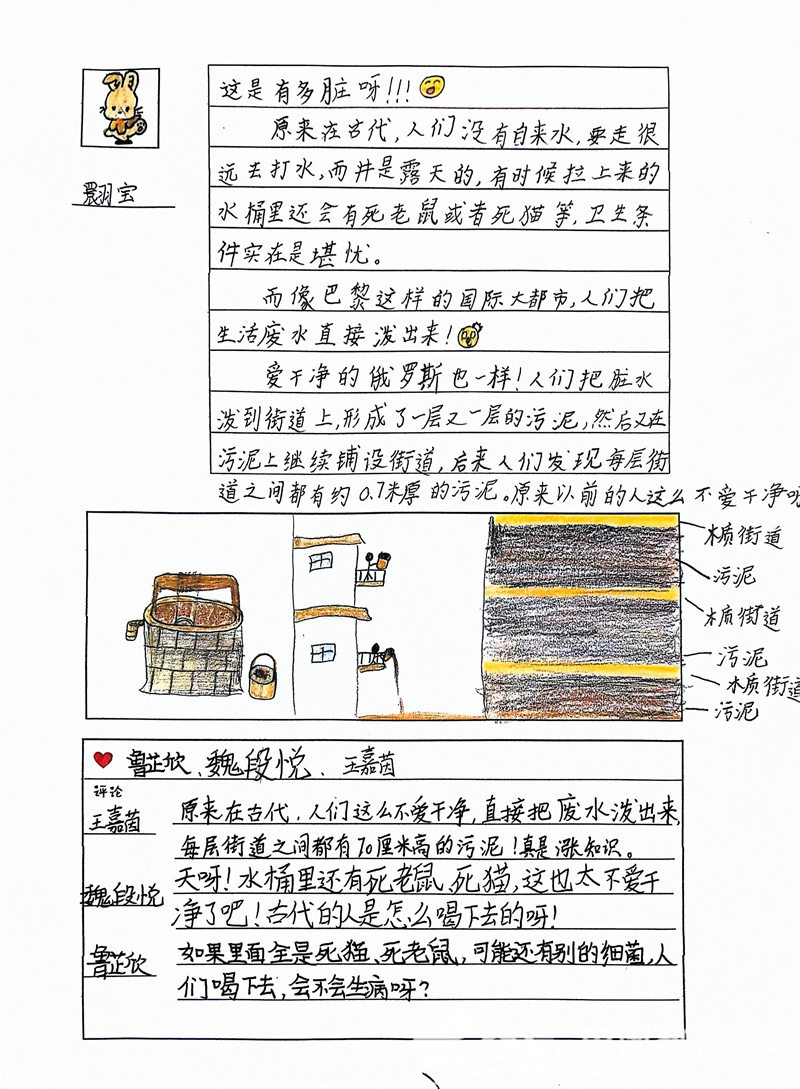 这是有多脏呀!!!
原来在古代,人们没有自来水,要走很
远去打水,而井是露天的,有时候拉上来的
翾宝
水桶里还会有死老鼠或者死猫等,卫生条
件实在是堪忧。
而像巴黎这样的国际大都市,人们把
生活废水直接泼出来!
爱干净的俄罗斯也一样!人们把脏水
泼到街道上,形成了一层又一层的污泥,然后又在
污泥上继续铺设街道,后来人们发现每层街
道之间都有约0.7米厚的污泥。原来以前的人这么不爱干净呀
木质街道
污泥
木质街道
污泥
木质街道
污泥
鲁芷欣、魏段悦、王嘉茵
评论
王嘉茵
原来在古代,人们这么不爱干净,直接把废水泼出来,
每层街道之间都有70厘米高的污泥!真是涨知识。
魏段悦
天呀!水桶里还有死老鼠、死猫,这也太不爱干
净了吧!古代的人是怎么喝下去的呀!
鲁芷欣
如果里面全是死猫、死老鼠,可能还有别的细菌,人
们喝下去,会不会生病呀?